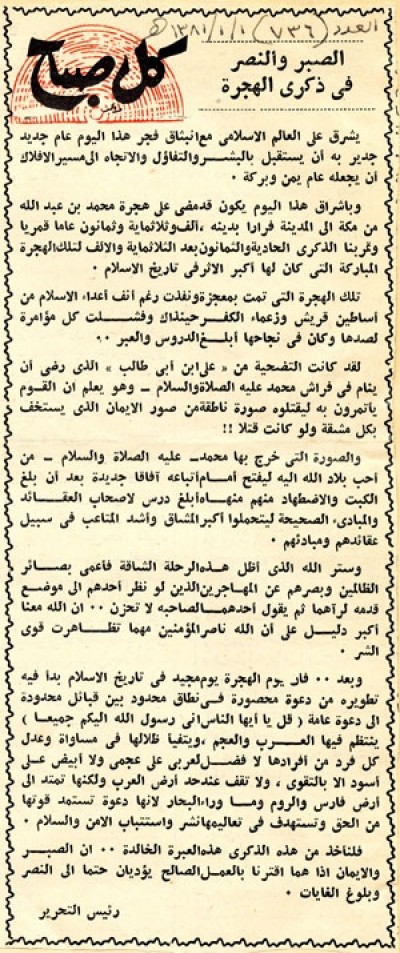 العدد (٧٣٦) ١٣٨١/١/١ هـ
كل صباح
الصبر والنصر
فى ذكرى الهجرة
يشرق على العالم الاسلامى مع انبثاق فجر هذا اليوم عام جديد
جدير به أن يستقبل بالبشر والتفاؤل والاتجاه الى مسير الافلاك
أن يجعله عام يمن وبركة ٠
وباشراق هذا اليوم يكون قد مضى على هجرة محمد بن عبد الله
من مكة الى المدينة فرارا بدينه ، ألف وثلاثماية وثمانون عاما قمريا
وتمر بنا الذكرى الحادية والثمانون بعد الثلاثماية والالف لتلك الهجرة
المباركة التى كان لها أكبر الاثر فى تاريخ الاسلام ٠
تلك الهجرة التى تمت بمعجزة ونفذت رغم أنف أعداء الاسلام من
أساطين قريش وزعماء الكفر حينذاك وفشلت كل مؤامرة
لصدها وكان فى نجاحها أبلغ الدروس والعبر ٠٠
لقد كانت التضحية من « على ابن أبى طالب » الذى رضى أن
ينام فى فراش محمد عليه الصلاة والسلام ــ وهو يعلم ان القوم
يأتمرون به ليقتلوه صورة ناطقة من صور الايمان الذى يستخف
بكل مشقة ولو كانت قتلا !!
والصورة التى خرج بها محمد ــ عليه الصلاة والسلام ــ من
أحب بلاد الله اليه ليفتح أمام أتباعه آفاقا جديدة بعد أن بلغ
الكبت والاضطهاد منهم منهاه أبلغ درس لاصحاب العقائد
والمبادىء الصحيحة ليتحملوا أكبر المشاق وأشد المتاعب فى سبيل
عقائدهم ومبادئهم ٠
وستر الله الذى أظل هذه الرحلة الشاقة فأعمى بصائر
الظالمين وبصرهم عن المهاجرين الذين لو نظر أحدهم الى موضع
قدمه لرآهما ثم يقول أحدهما لصاحبه لا تحزن ٠٠ ان الله معنا
أكبر دليل على أن الله ناصر المؤمنين مهما تظاهرت قوى
الشر ٠
وبعد ٠٠ فان يوم الهجرة يوم مجيد فى تاريخ الاسلام بدأ فيه
تطويره من دعوة محصورة فى نطاق محدود بين قبائل محدودة
الى دعوة عامة ( قل يا أيها الناس انى رسول الله اليكم جميعا )
ينتظم فيها العرب والعجم ، ويتفيأ ظلالها فى مساواة وعدل
كل فرد من أفرادها لا فضل لعربى على عجمى ولا أبيض على
أسود الا بالتقوى ، ولا تقف عند حد أرض العرب ولكنها تمتد الى
أرض فارس والروم وما وراء البحار لانها دعوة تستمد قوتها
من الحق وتستهدف فى تعاليمها نشر واستتباب الامن والسلام ٠
فلنأخذ من هذه الذكرى هذه العبرة الخالدة ٠٠ ان الصبر
والايمان اذا هما اقترنا بالعمل الصالح يؤديان حتما الى النصر
وبلوغ الغايات ٠
رئيس التحرير